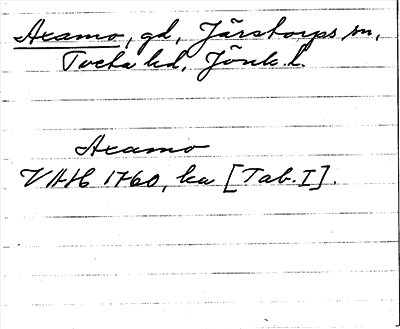 Axamo, gd, Järstorps sn,
Tveta hd, Jönk. l.
Axamo
VAH 1760, ka [Tab. I].